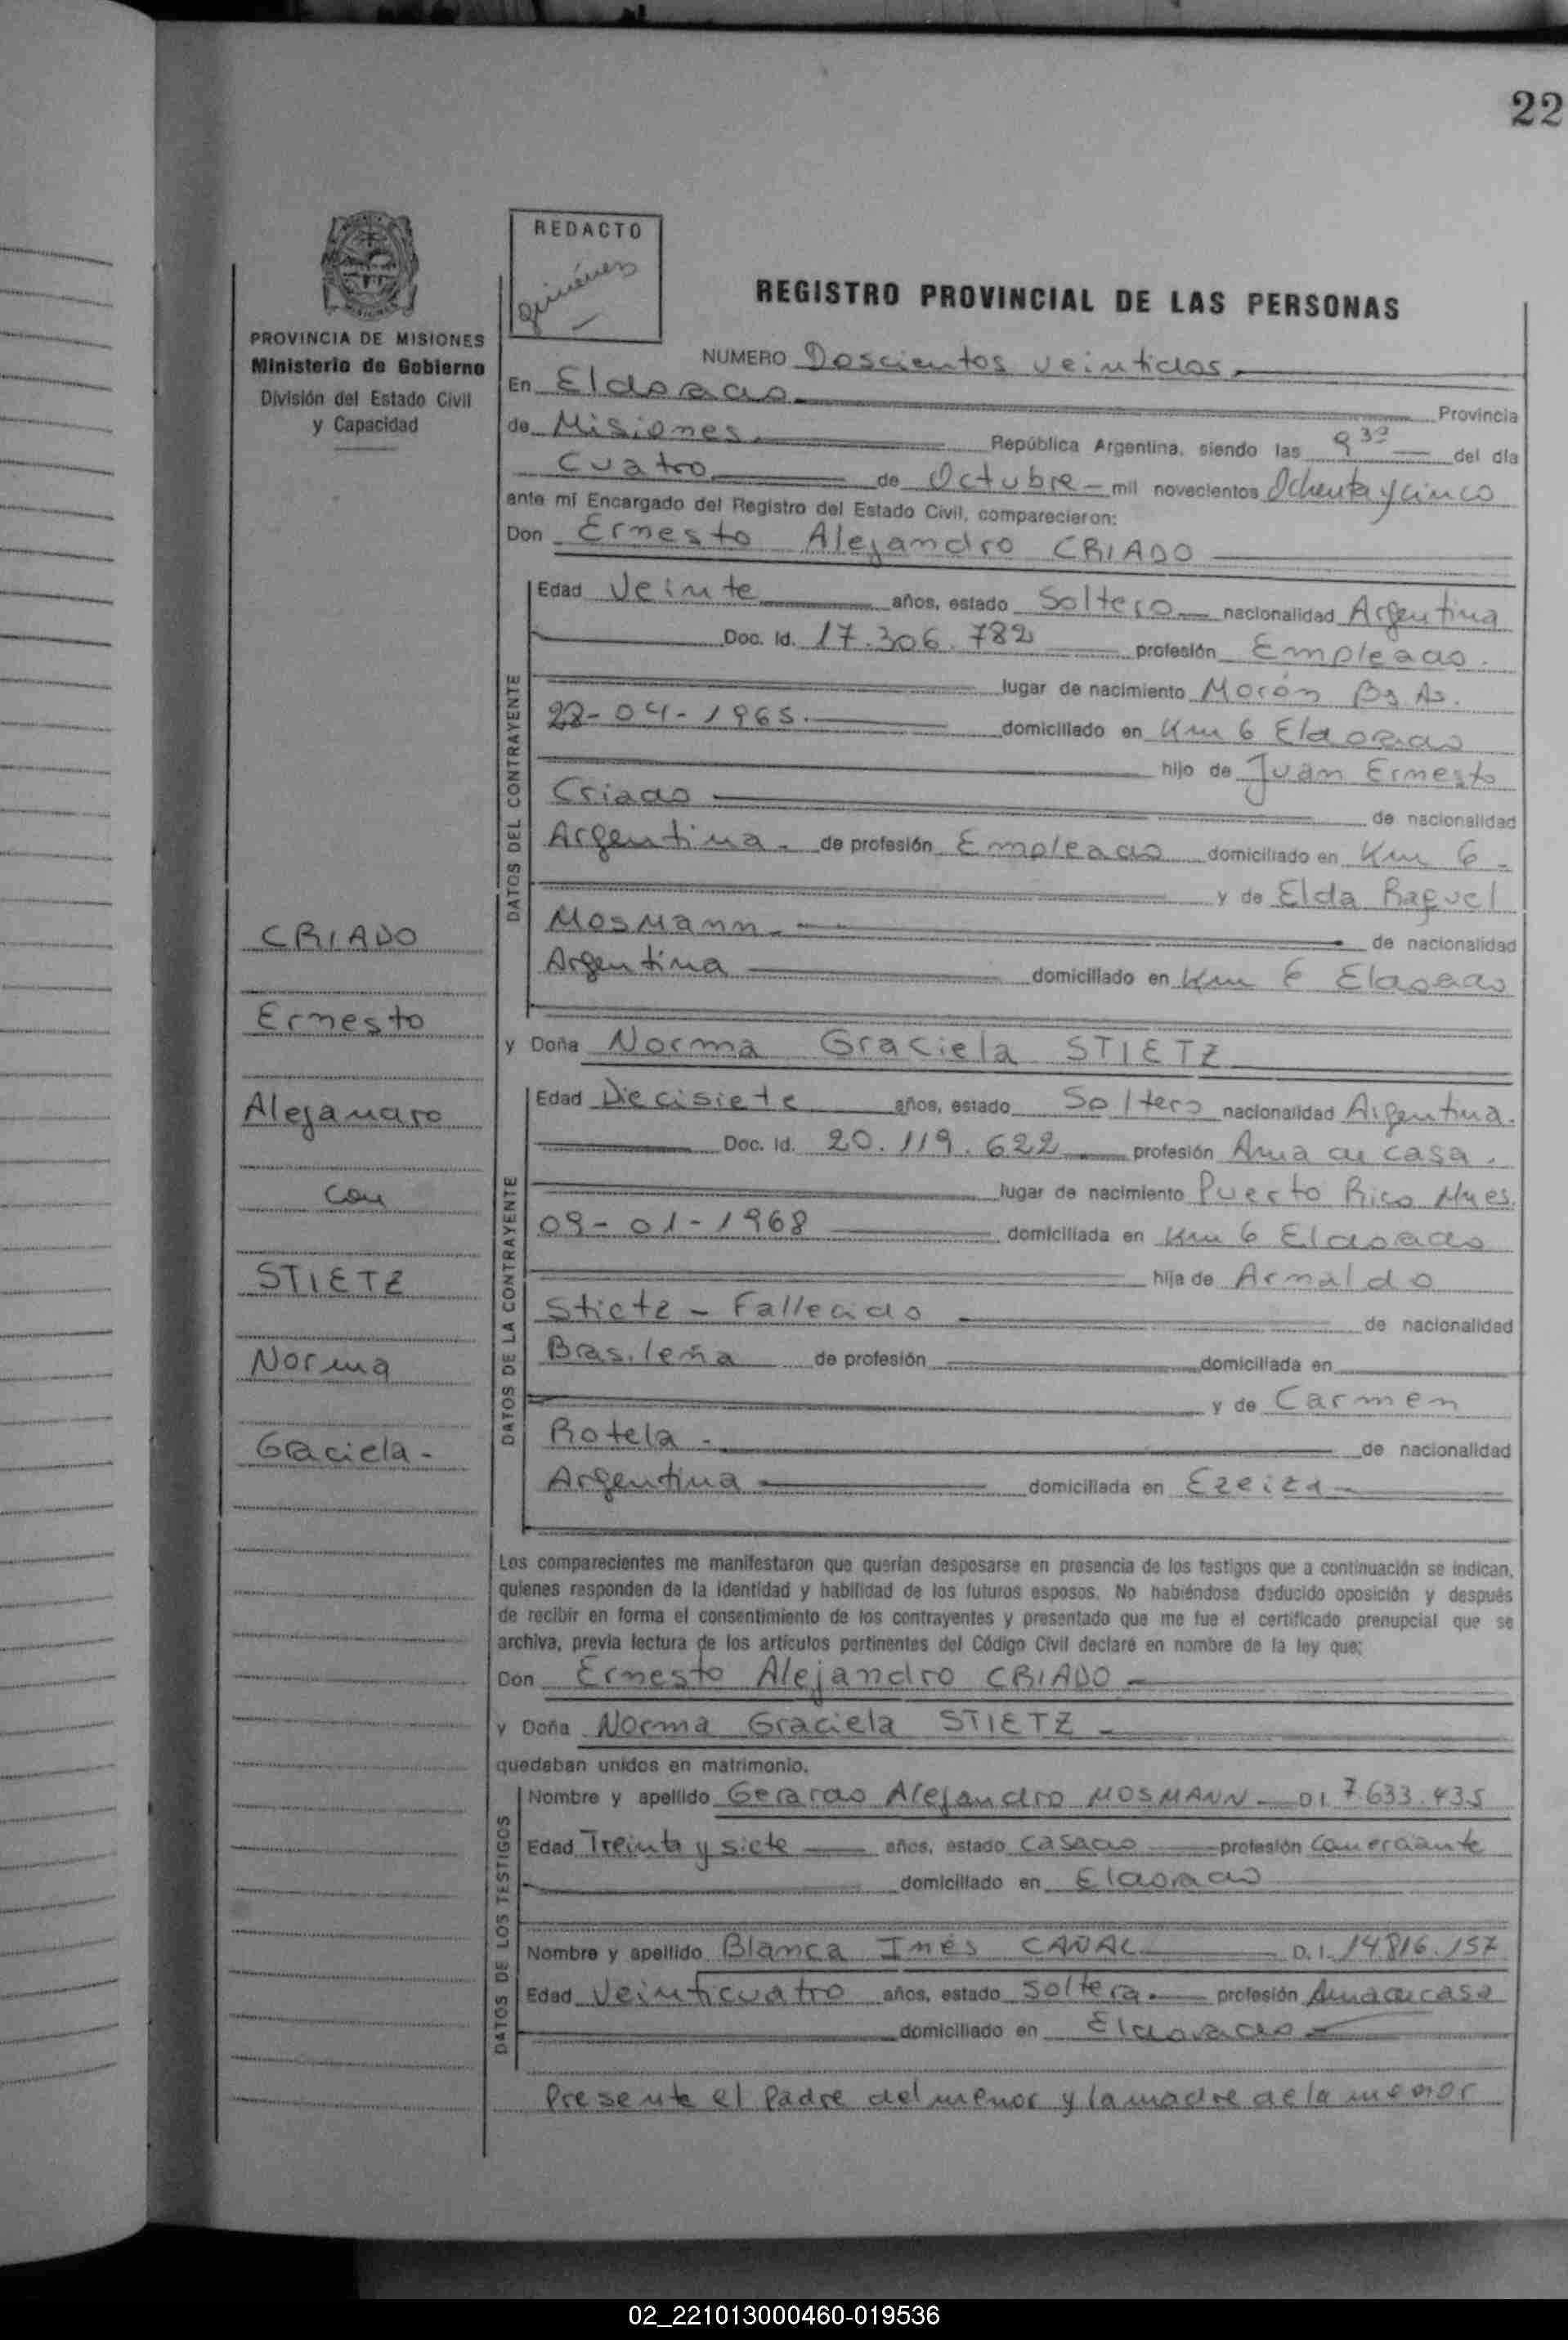 22
REDACTO
Giménez
REGISTRO PROVINCIAL DE LAS PERSONAS
PROVINCIA DE MISIONES
Ministerio de Gobierno
División del Estado Civil
y Capacidad
NUMERO Doscientos veintidos.
En Eldorado. Provincia
de Misiones República Argentina, siendo las 9 30 del día
Cuatro de Octubre - mil novecientos Ochenta y cinco
ante mí Encargado del Registro del Estado Civil, comparecieron:
Don Ernesto Alejandro CRIADO
DATOS DEL CONTRAYENTE
Edad Veinte años, estado Soltero nacionalidad Argentina
Doc. Id. 17.306.782 profesión Empleado.
lugar de nacimiento Morón Bs. As.
28-04-1965. domiciliado en Km 6 Eldorado
hijo de Juan Ernesto
Criado de nacionalidad
Argentina. de profesión Empleado domiciliado en Km 6 -
y de Elda Raquel
Mosmann. de nacionalidad
Argentina domiciliado en Km 6 Eldorado
y Doña Norma Graciela STIETZ
DATOS DE LA CONTRAYENTE
Edad Diecisiete años, estado Soltera nacionalidad Argentina.
Doc. Id. 20.119.622 profesión Ama de casa.
lugar de nacimiento Puerto Rico Mnes.
09-01-1968 domiciliada en Km 6 Eldorado
hija de Arnaldo
Stietz - Fallecido de nacionalidad
Brasileña de profesión domiciliada en
y de Carmen
Rotela - de nacionalidad
Argentina domiciliada en Ezeiza
CRIADO
Ernesto
Alejandro
con
STIETZ
Norma
Graciela -
Los comparecientes me manifestaron que querían desposarse en presencia de los testigos que a continuación se indican,
quienes responden de la identidad y habilidad de los futuros esposos. No habiéndose deducido oposición y después
de recibir en forma el consentimiento de los contrayentes y presentado que me fue el certificado prenupcial que se
archiva, previa lectura de los artículos pertinentes del Código Civil declaré en nombre de la ley que:
Don Ernesto Alejandro CRIADO
y Doña Norma Graciela STIETZ
quedaban unidos en matrimonio.
DATOS DE LOS TESTIGOS
Nombre y apellido Gerardo Alejandro MOSMANN - D.I. 7.633.435
Edad Treinta y siete años, estado Casado profesión Comerciante
domiciliado en Eldorado
Nombre y apellido Blanca Inés D.I. 14.816.157
Edad Veinticuatro años, estado Soltera. profesión Ama de casa
domiciliado en Eldorado
Presente el Padre del menor y la madre de la menor
02_221013000460-019536